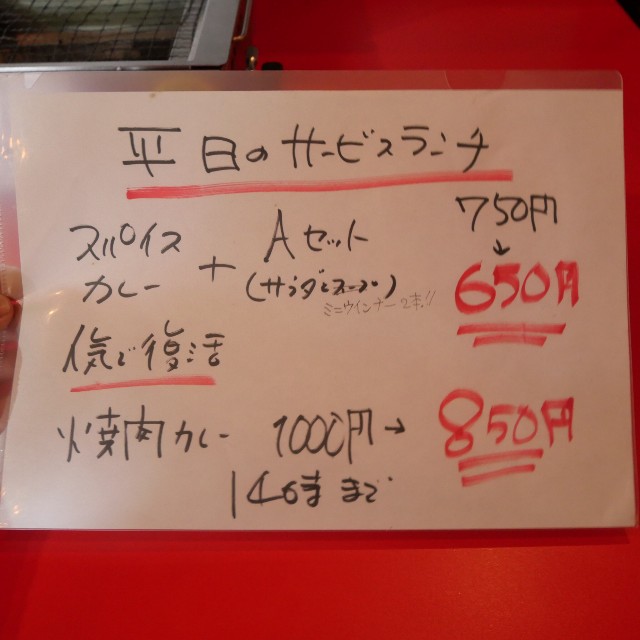 平日のサービスランチ
スパイスカレー + Aセット (サラダとスープ) 750円
↓
650円
ミニウインナー2本!!
人気で復活
焼肉カレー 1000円→ 850円
14時まで